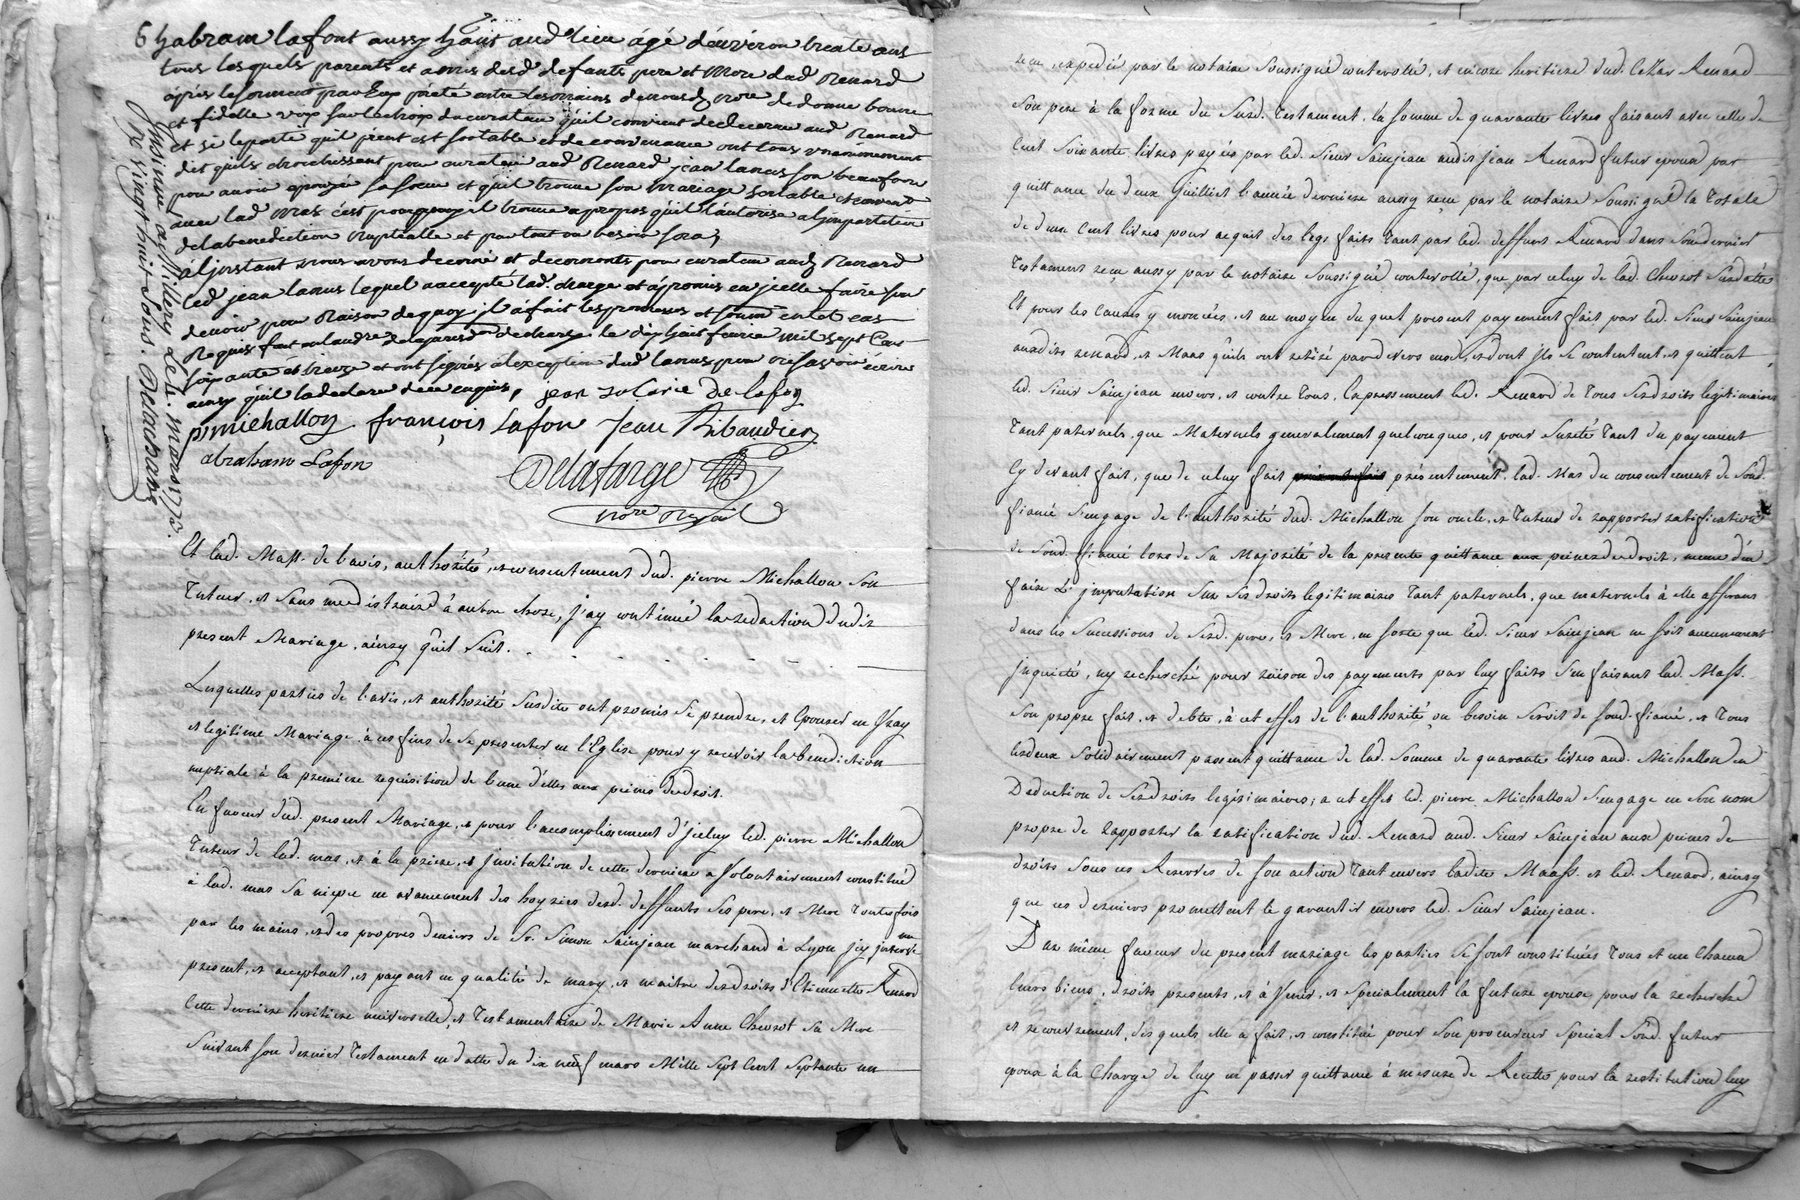 6 habram lafont aussy habit aud. lieu agé denviron trente ans
tous lesquels parents et amis desd. defants pere et Mere dud Renard
apres le serment par Eux preté entre les mains de nousd. nore de donner bonne
et fidelle voix sur le choix du curateur quil convient de decerner aud Renard
et si le parti quil prent est sortable et de convenance ont tous unanimement
dit quils choisissent pour curateur aud Renard jean lanus son beaufrere
pour avoir epouzé sa soeur et quil trouve son mariage sortable et
avec lad. mas cest pourquoy il trouve apropos quil l'autorise a limpartition
de la benediction nuptialle et partout ou besoin sera;
a l'jnstant nous avons decerné et decernons pour curateur aud Renard
led jean lanus lequel a accepté lad. charge et a promis en jcelle faire son
devoir pour Raison de quoy il a fait les promesses et soumi en tel cas
Requis fait au
soixante et treize et ont signés a l'exception dud lanus pour ne savoir écrire
ainsy quil la declaré de ce enquis, jean De lafon
p michallon françois Lafon Jean Ribaudier
abraham Lafon
Delafarge
nore Royal
Insinué a Millery Le 8. mars 1773.
Re vingt huit sols. Devarax
Et lad. Mass. de l'avis, authorité, et consentement dud. pierre Michallon Son
Tuteur, et sans me distraire à autre chose, j'ay continué la redaction dudit
present Mariage, ainsy quil Suit.
Lesquelles parties de l'avis, et authorité susdite ont promis Se prendre, et Epouser en vray
et legitime Mariage à ces fins de Se presenter en l'Eglise pour y recevoir la benediction
nuptiale à la premiere requisition de l'une d'elles aux peines de droit.
En faveur dud. present Mariage, et pour l'accomplissement d'jceluy led. pierre Michallon
Tuteur de lad. mas, et à la priere, et jnvitation de cette derniere a volontairement constitué
à lad. mas Sa niepce en avancement des hoyries desd. deffunts Ses pere, et Mere Toutesfois
par les mains, et des propres deniers de Sr. Simon Sainjean marchand à Lyon jcy
present, et acceptant, et payant en qualité de mary, et maitre des droits d'Etiennette Renard
Cette derniere heritiere universelle, et Testamentaire de Marie Anne Cheuzot Sa Mere
Suivant Son dernier Testament en datte du dix neuf mars Mille Sept Cent Septante un
recu, expedié par le notaire Soussigné controllé, et encore heritiere dud. Cezar Renard
Son pere à la forme du Susd. Testament, la somme de quarante livres faisant avec celle de
Cent Soixante livres payées par led. Sieur Sainjean audit Jean Renard futur epoux par
quittance du deux Juillet l'année derniere aussy reçue par le notaire Soussigné la Totale
de deux Cent livres pour acquit des legs faits Tant par led. deffunt Renard dans Son dernier
Testament reçu aussy par le notaire Soussigné controllé, que par celuy de lad. Cheuzot Susdatté
Et pour les Causes y enoncées, et au moyen du quel present payement fait par led. Sieur Sainjean
auxdits renard, et Mass quils ont retiré pardevers eux, et dont jls Se contentent, et quittent
led. Sieur Sainjean envers, et contre Tous, Expressement led. Renard de Tous Ses droits legitimaires
Tant paternels, que Maternels generalement quelconques, et pour Sureté Tant du payement
Cy devant fait, que de celuy fait présentement, lad. Mas du consentement de Sond.
fiancé S'engage de l'authorité dud. Michallon son oncle, et Tuteur de rapporter ratification
de Sond. fiancé lors de Sa Majorité de la presente quittance aux peines de droit, meme d'en
faire L'jmputation Sur Ses droits legitimaires Tant paternels, que maternels à elle afferants
dans les Successions de Sesd. pere, et Mere, en sorte que led. Sieur Sainjean ne soit aucunement
jnquieté, ny recherché pour raison des payements par luy faits S'en faisant lad. Mass.
Son propre fait, et debte, à cet effet de l'authorité, ou besoin Seroit de Sond. fiancé, et Tous
lesdeux Solidairement passent quittance de lad. Somme de quarante livres aud. Michallon en
Deduction de Ses droits legitimaires; a cet effet led. pierre Michallon S'engage en Son nom
propre de rapporter la ratification dud. Renard aud. Sieur Sainjean aux peines de
droits Sous les Reserves de Son action Tant envers ladite Maass. et led. Renard, ainsy
que ces derniers promettent le garantir envers led. Sieur Sainjean.
De meme faveur du present mariage les parties Se sont constituées Tous et un Chacun
leurs biens, droits presents, et à Venir, et Specialement la future epouse pour la recherche
et recouvrement, desquels elle a fait, et constitué pour Son procureur Special Sond. futur
epoux à la Charge de luy en passer quittance à mesure de Recette pour la restitution luy